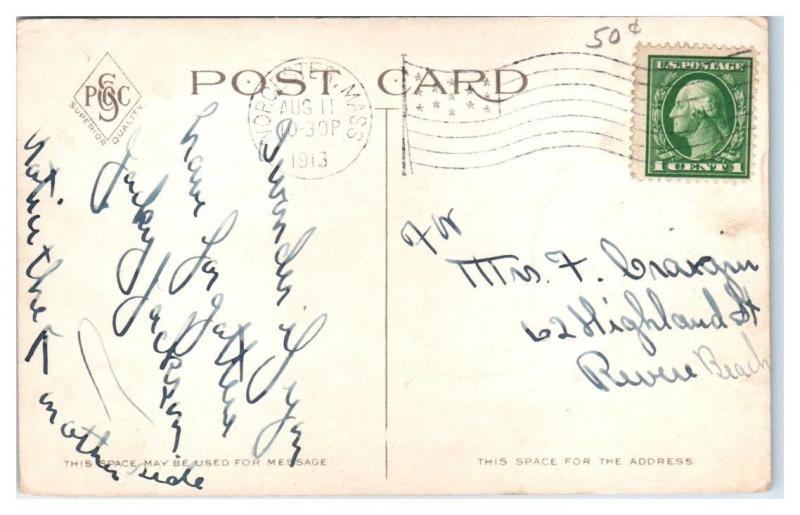 50¢
POST CARD
PCSC
SUPERIOR QUALITY
WORCESTER, MASS
AUG 11
10-30P
1913
U.S. POSTAGE
1 CENT 1
I wonder if you
have forgotten
Jacky Jackson
Notice the
on other side
For
Mrs. F.
62 Highland St
Revere Beach
THIS SPACE MAY BE USED FOR MESSAGE
THIS SPACE FOR THE ADDRESS